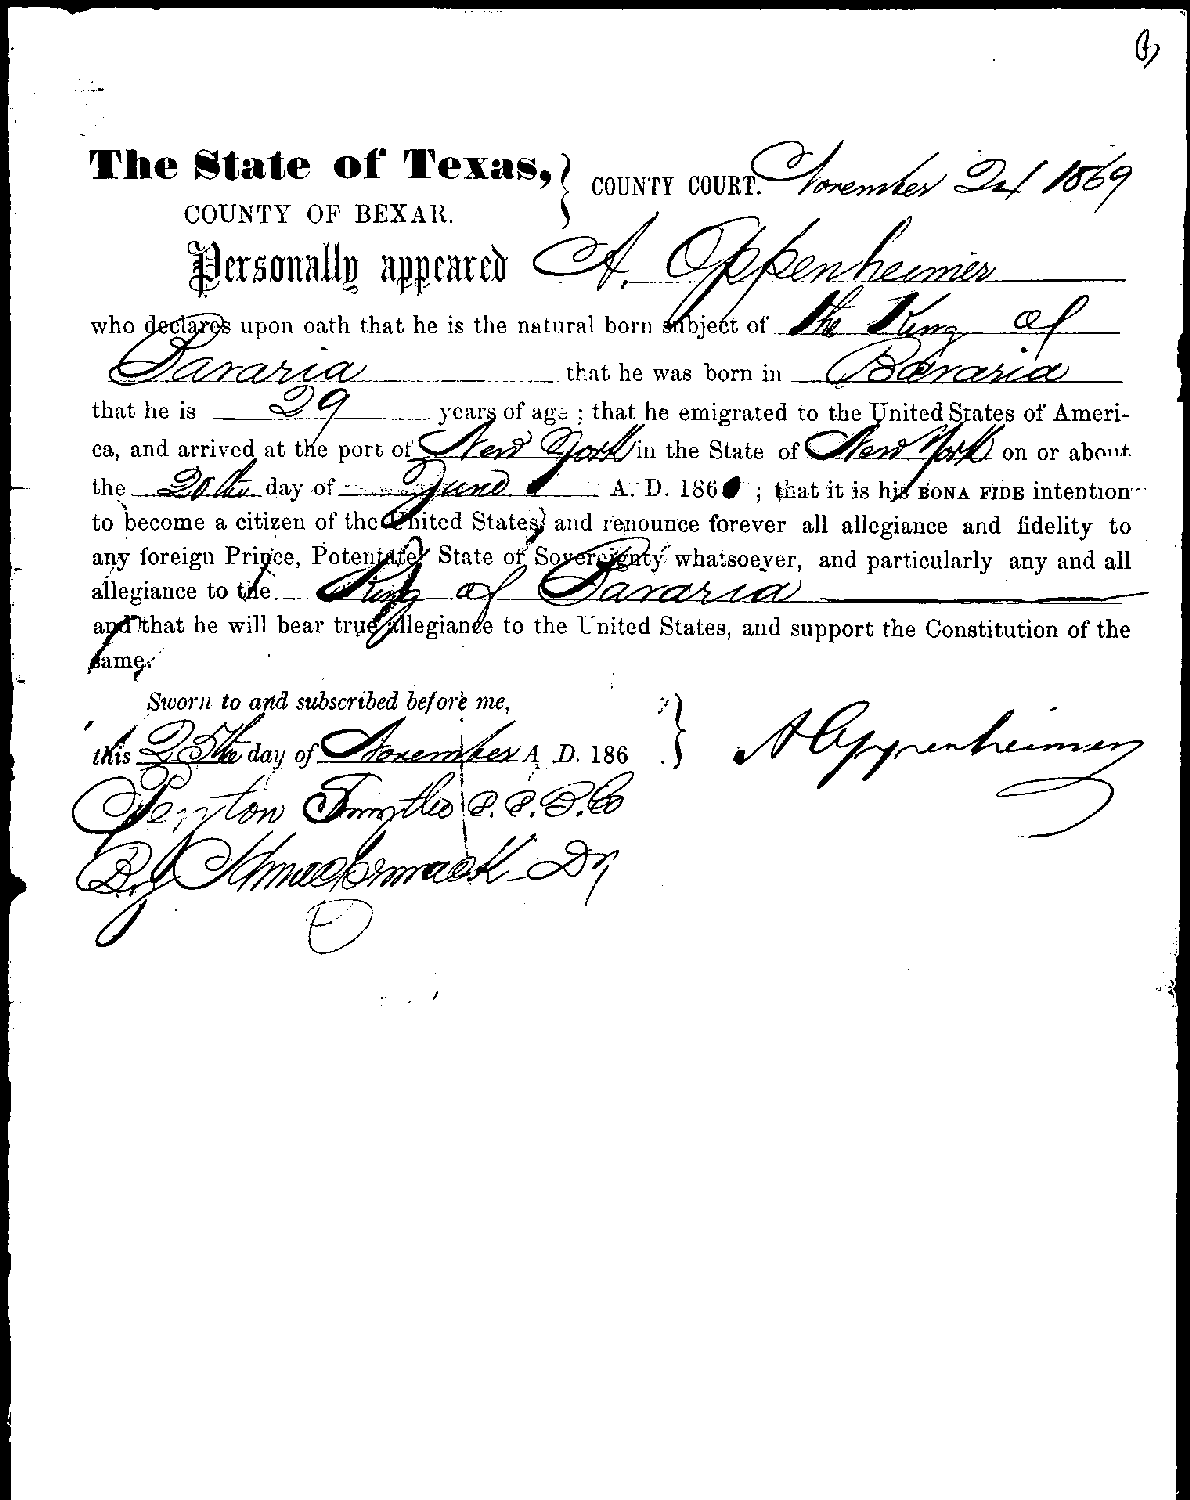 The State of Texas, } COUNTY COURT. November 1869
COUNTY OF BEXAR.
Personally appeared A. Oppenheimer
who declares upon oath that he is the natural born subject of the King of
Bavaria that he was born in Bavaria
that he is 29 years of age ; that he emigrated to the United States of Ameri-
ca, and arrived at the port of New York in the State of New York on or about
the 20th day of June A. D. 186 ; that it is his BONA FIDE intention
to become a citizen of the United States, and renounce forever all allegiance and fidelity to
any foreign Prince, Potentate, State of Sovereignty whatsoever, and particularly any and all
allegiance to the King of Bavaria
and that he will bear true allegiance to the United States, and support the Constitution of the
same.
Sworn to and subscribed before me,
this 25th day of November A. D. 186 } A Oppenheimer
By